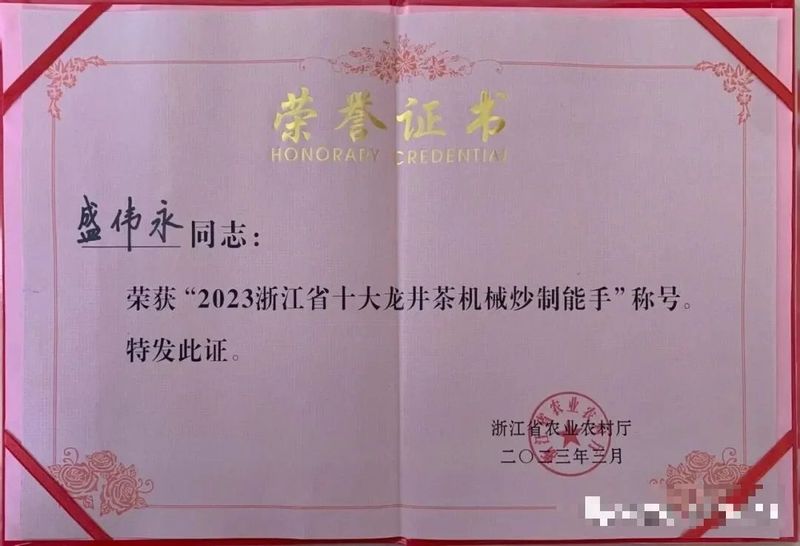 荣誉证书
HONORARY CREDENTIAL
盛伟永同志：
荣获“2023浙江省十大龙井茶机械炒制能手”称号。
特发此证。
浙江省农业农村厅
二〇二三年三月
浙江省农业农村厅